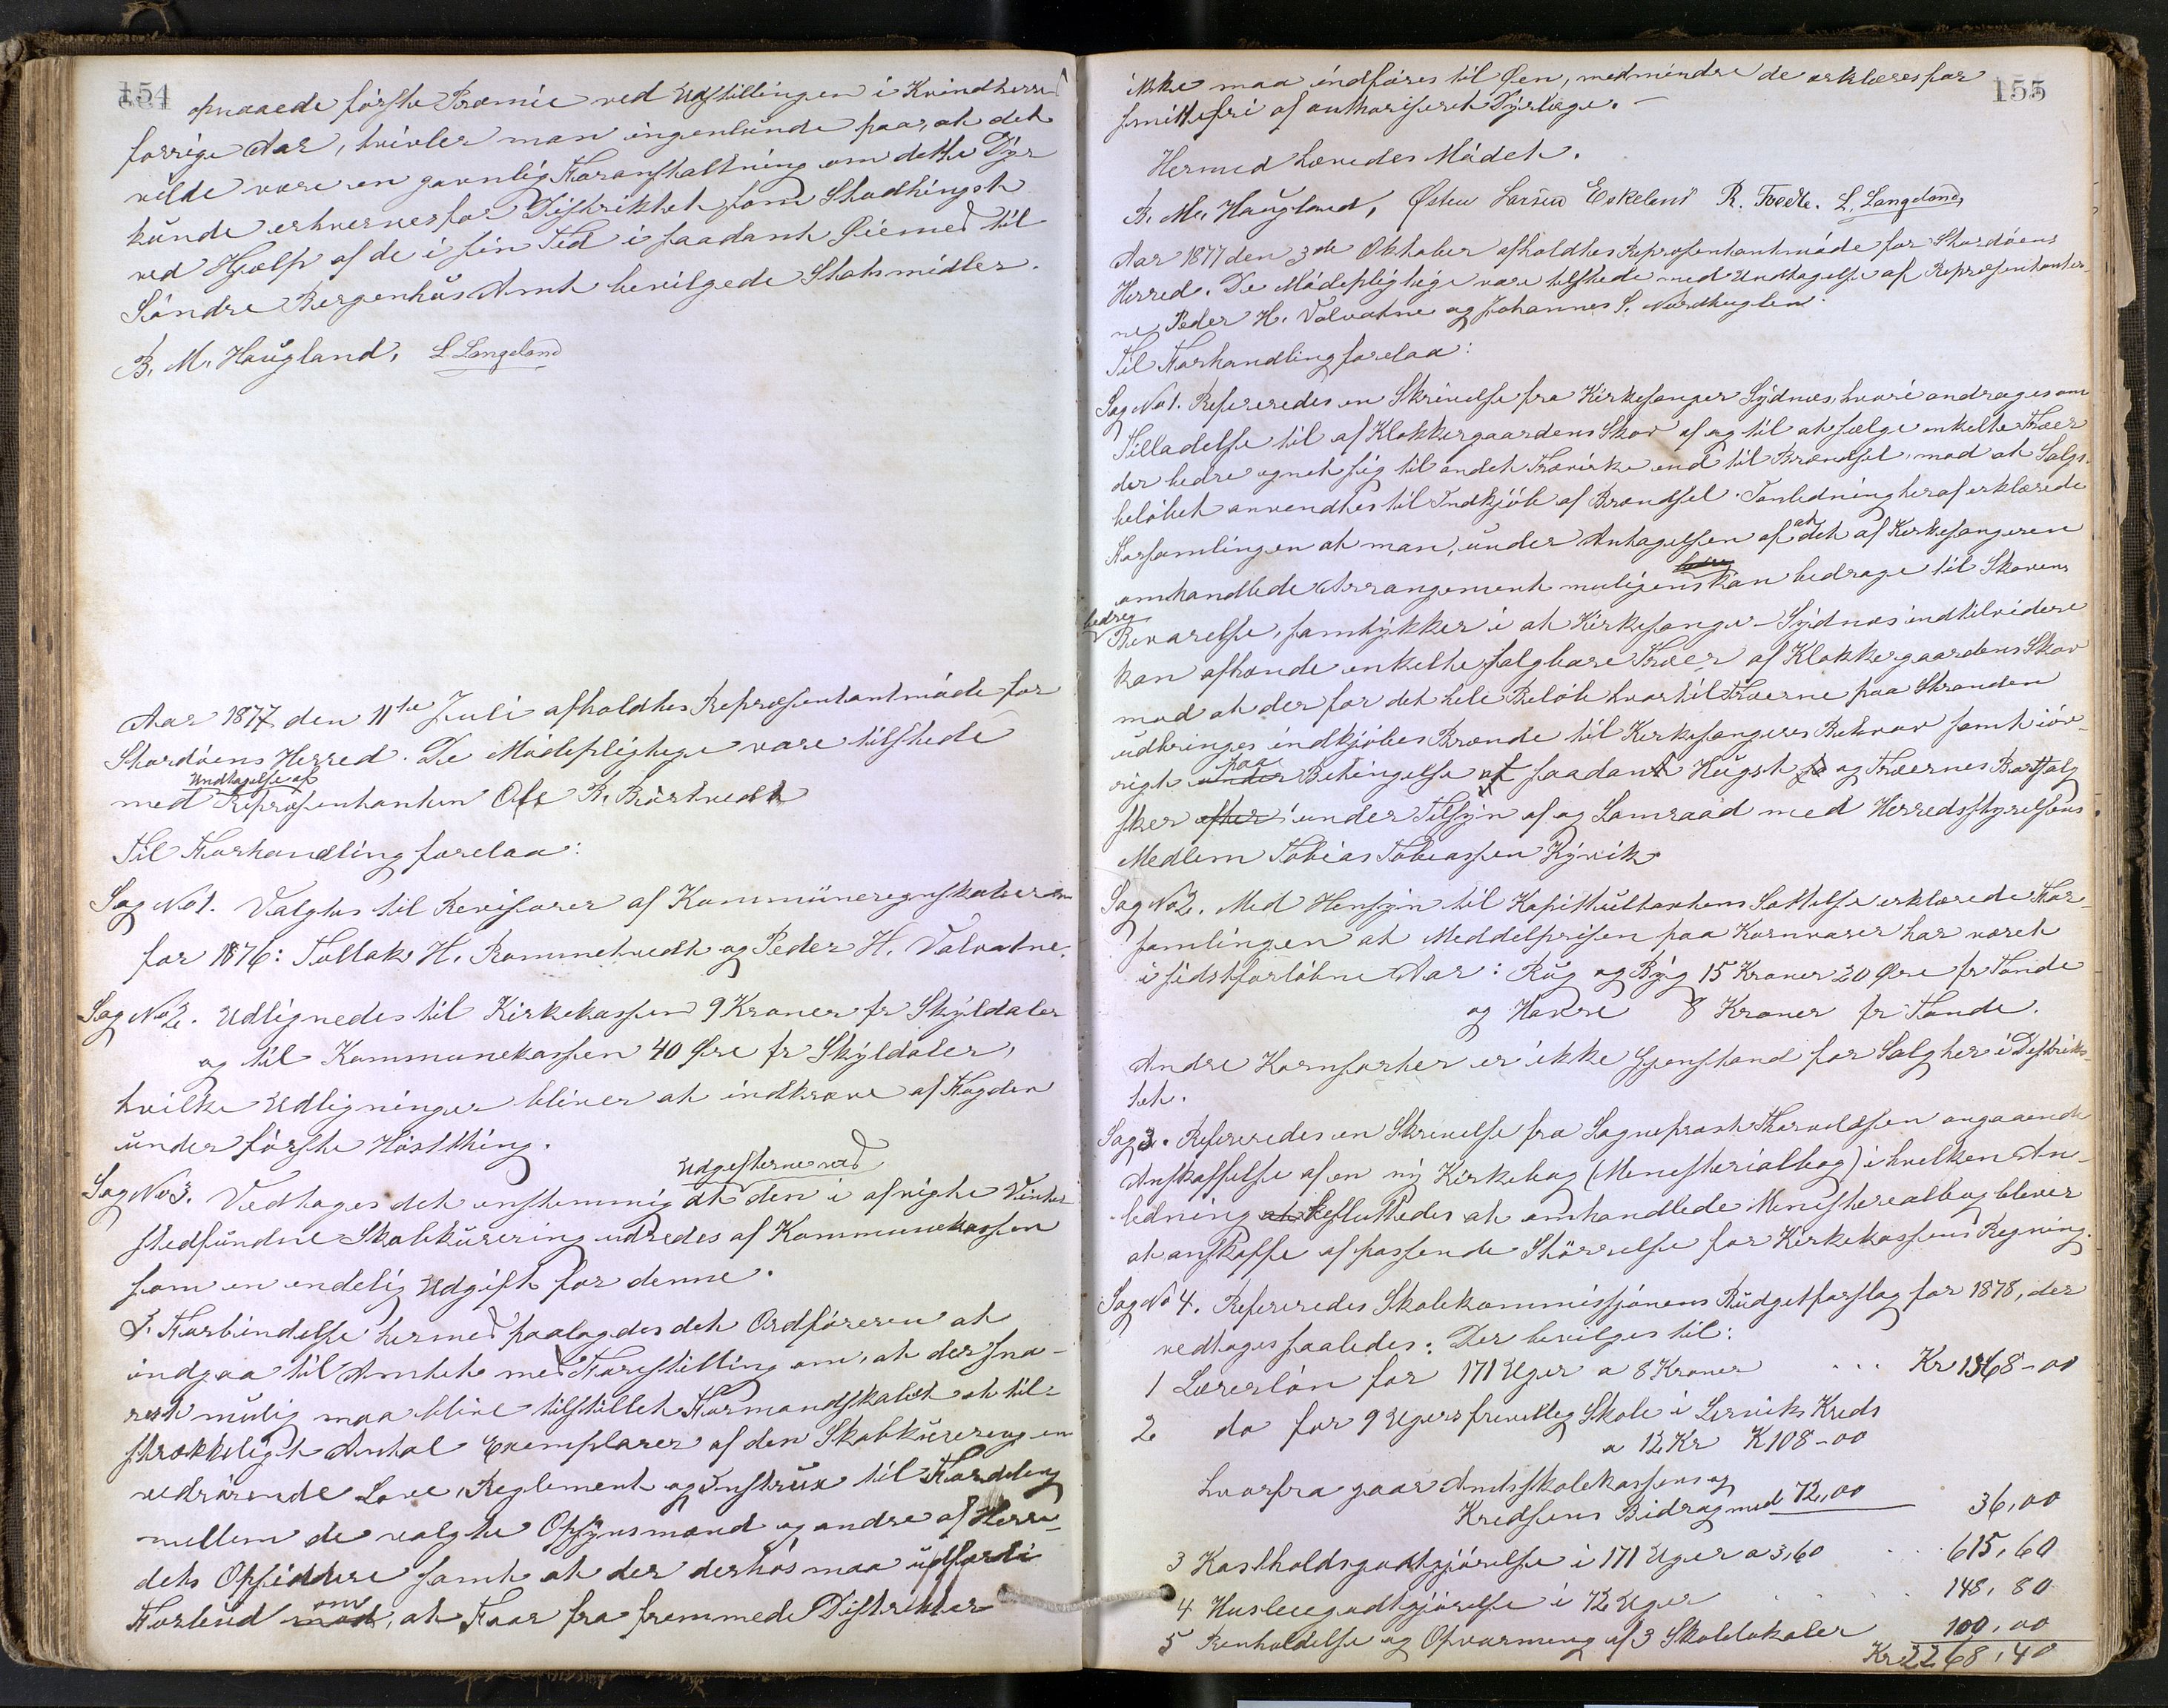 154
opnaaede første Præmie ved Udstillingen i Kvindherred
forrige Aar, tvivler man ingenlunde paa, at det
vilde være en gavnlig Foranstaltning om dette Dyr
kunde erhverves for Distriktet som Stodhingst
ved Hjælp af de i sin Tid i saadant Øiemed til
Søndre Bergenhus Amt bevilgede Statsmidler.
B. M. Haugland, L Langeland
Aar 1877 den 11te Juli afholdtes Repræsentantmøde for
Stordøens Herred. De Mødepligtige vare tilstede
Undtagelse af
med Repræsentanten Ole B. Børtvedt
Til Forhandling forelaa:
Sag No 1. Valgtes til Revisorer af Kommuneregnskaberne
for 1876: Tollak H. Rommetvedt og Peder H. Valvatne.
Sag No 2. Udlignedes til Kirkekassen 9 Kroner pr Skyldaler
og til Kommunekassen 40 Øre pr Skyldaler,
hvilke Udligninger bliver at indkræve af Fogden
under første Høstthing.
Udgifterne ved
Sag No 3. Vedtoges det enstemmig at den i afvigte Vinter
stedfundne Skabkurering udredes af Kommunekassen
som en endelig Udgift for denne.
I Forbindelse hermed paalagdes det Ordføreren at
indgaa til Amtet med Forestilling om, at der sna-
rest mulig maa blive tilstillet Formandskabet et til-
strækkeligt Antal Exemplarer af den Skabkurering en
vedrørende Love, Reglement og Instrux til Fordeling
mellem de valgte Opsynsmænd og andre af Herre-
dets Opsiddere samt at der derhos maa udfærdi
om
Forbud mod, at Faar fra fremmede Distrikter
155
ikke maa indføres til Øen, medmindre de erklæres for
smittefri af authoriseret Dyrlæge.-
Hermed hævedes Mødet.
B. M. Haugland, Østen Larsen Eskeland R. Tvedte. L. Langeland,
Aar 1877 den 3de Oktober afholdtes Repræsentantmøde for Stordøens
Herred. De Mødepligtige vare tilstede med Undtagelse af Repræsentanter-
ne Peder H. Valvatne og Johannes S. Nordhuglen.
Til Forhandling forelaa:
Sag No 1. Refereredes en Skrivelse fra Kirkesanger Sydnes, hvori andrages om
Tilladelse til af Klokkergaardens Skov af og til at sælge enkelte Træer
der bedre egnet sig til andet Trævirke end til Brændsel, mod at Salgs-
beløbet anvendtes til Indkjøb af Brændsel. I Anledning heraf erklærede
at
Forsamlingen at man, under Antagelsen af det af Kirkesangeren
omhandlede Arrangement muligens kan bedrage til Skovens
bedre
Bevarelse, samtykker i at Kirkesanger Sydnes indtilvidere
kan afhænde enkelte salgbare Træer af Klokkergaardens Skov
mod at der for det hele Beløb hvortil Træerne paa Stranden
udbringes indkjøbes Brænde til Kirkesangerens Behov samt iøv-
paa
rigt under Betingelse at saadan Hugst og Træernes Bortsalg
sker efter under Tilsyn af og Samraad med Herredsstyrelsens
Medlem Tobias Tobiassen Kyvik.
Sag No 2. Med Hensyn til Kapitultaxtens Sættelse erklærede For-
samlingen at Meddelprisen paa Kornvarer har været
i sidstforløbne Aar: Rug og Byg 15 Kroner 20 Øre pr Tønde
og Havre 8 Kroner pr Tønde.
Andre Kornsorter er ikke Gjenstand for Salg her i Distrik-
tet.
Sag 3. Refereredes en Skrivelse fra Sogneprest Thorvaldsen angaaende
Anskaffelse af en ny Kirkebog (Ministerialbog) i hvilken An-
ledning at besluttedes at omhandlede Ministerealbog bliver
at anskaffe af passende Størrelse for Kirkekassens Regning.
Sag No 4. Refereredes Skolekommissionens Budgetforslag for 1878, der
vedtoges saaledes: Der bevilges til:
1 Lærerløn for 171 Uger a 8 Kroner ... Kr 1368-00
2 do for 9 Ugers frivillig Skole i Lerviks Kreds
a 12 Kr K 108-00
hvorfra gaar Amtsskolekassens og
Kredsens Bidrag med 72,00 36,00
3 Kostholdsgodtgjørelse i 171 Uger a 3,60 615,60
4 Husleiegodtgjørelse i 72 Uger 148,80
5 Renholdelse og Opvarmning af 3 Skolelokaler 100,00
Kr 2268,40